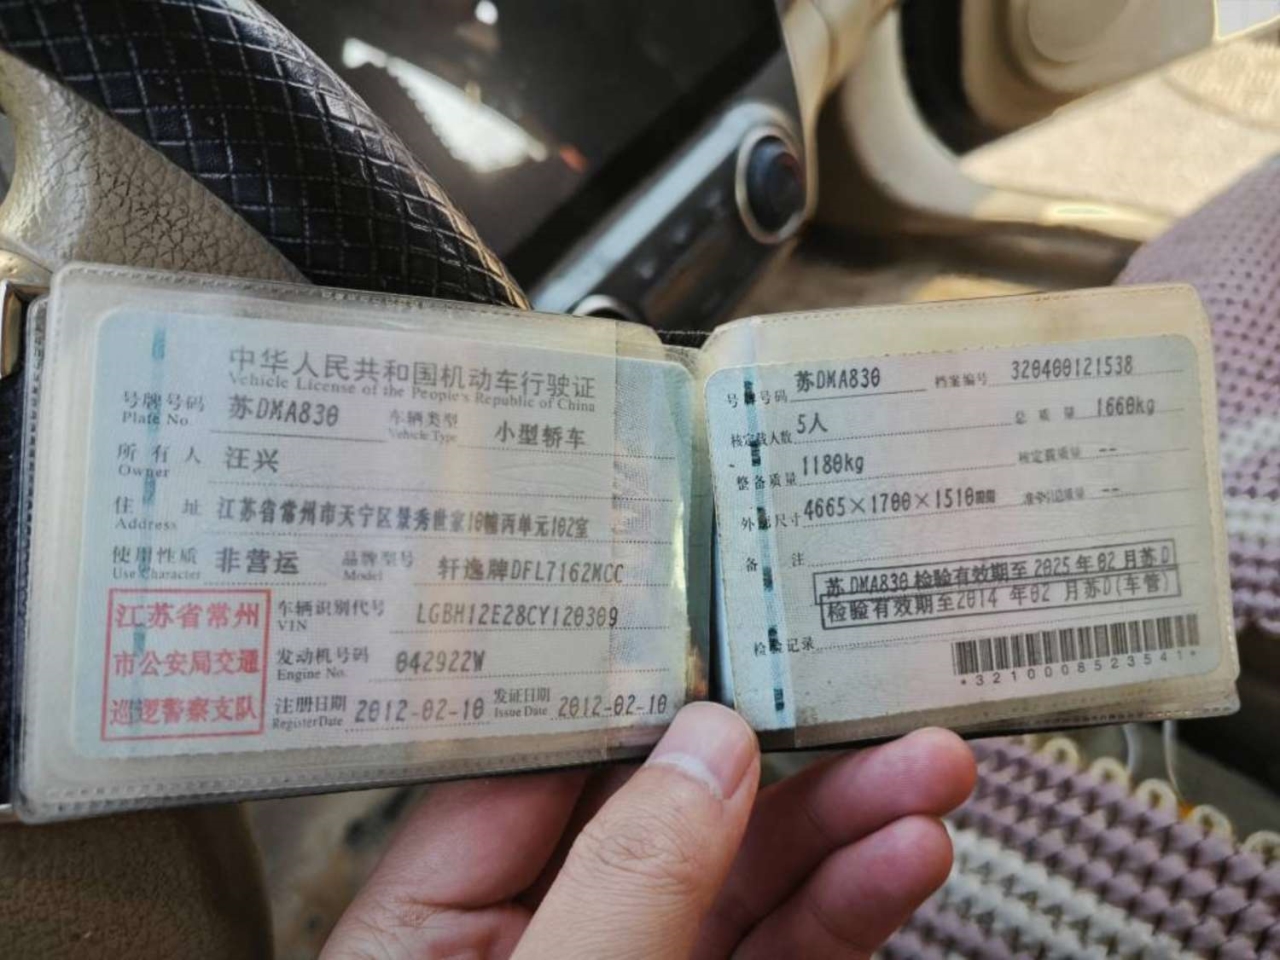 中华人民共和国机动车行驶证
Vehicle License of the People's Republic of China
号牌号码 苏DMA830 车辆类型 小型轿车
Plate No. Vehicle Type
所有人 汪兴
Owner
住址 江苏省常州市天宁区景秀世家10幢丙单元102室
Address
使用性质 非营运 品牌型号 轩逸牌DFL7162MCC
Use Character Model
江苏省常州
市公安局交通
巡逻警察支队
车辆识别代号 LGBH12E28CY120309
VIN
发动机号码 042922W
Engine No.
注册日期 2012-02-10 发证日期 2012-02-10
Register Date Issue Date
号牌号码 苏DMA830 档案编号 320400121538
核定载人数 5人 总质量 1660kg
整备质量 1180kg 核定载质量 --
外廓尺寸 4665×1700×1510 准牵引总质量 --
备注
苏DMA830 检验有效期至2025年02月苏D
检验有效期至2014年02月苏D(车管)
检验记录
*3210008523541*